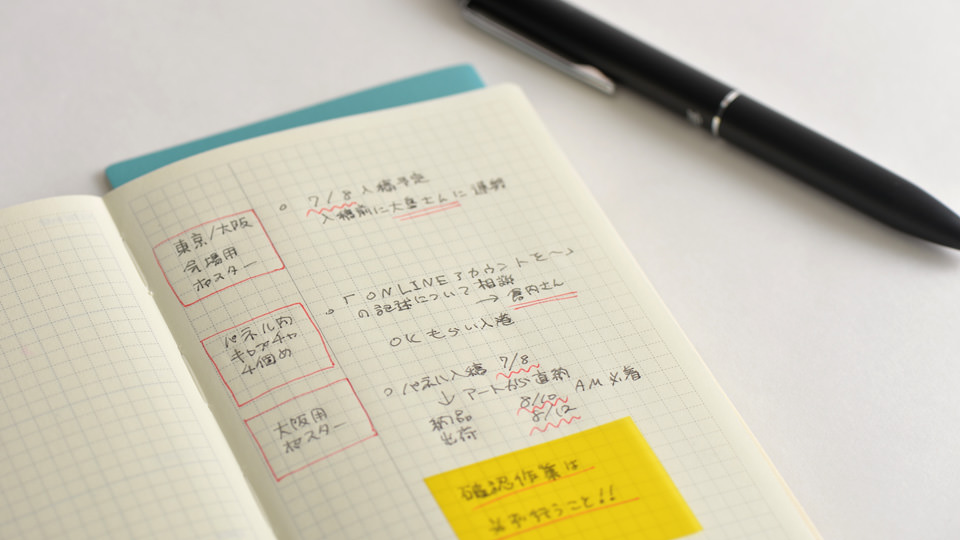 東京/大阪
会場用
ポスター
○ 7/8 入稿予定
入稿前に大島さんに連絡
パネル内
キャプチャ
4個め
○ 「ONLINEアカウントを〜」
の記述について相談
→ 倉内さん
OKもらい入稿
大阪用
ポスター
○ パネル入稿 7/8
↓ アートから直納
納品 8/10 AM必着
出荷 8/12
確認作業は
必ず行うこと!!